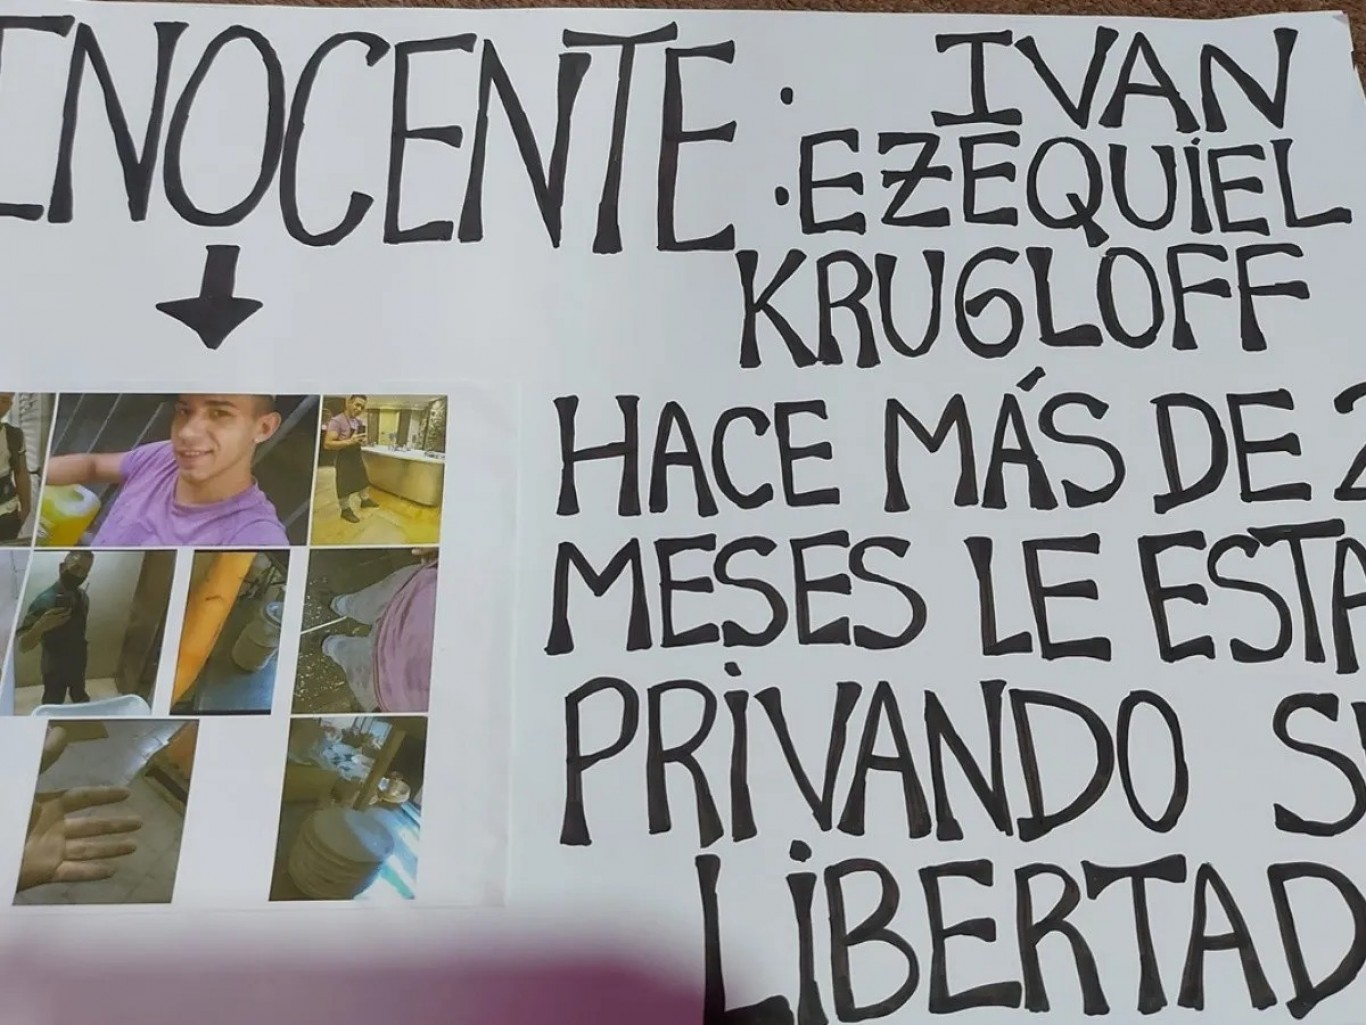 INOCENTE : IVAN
EZEQUIEL
KRUGLOFF
HACE MÁS DE 2
MESES LE ESTA
PRIVANDO SU
LIBERTAD